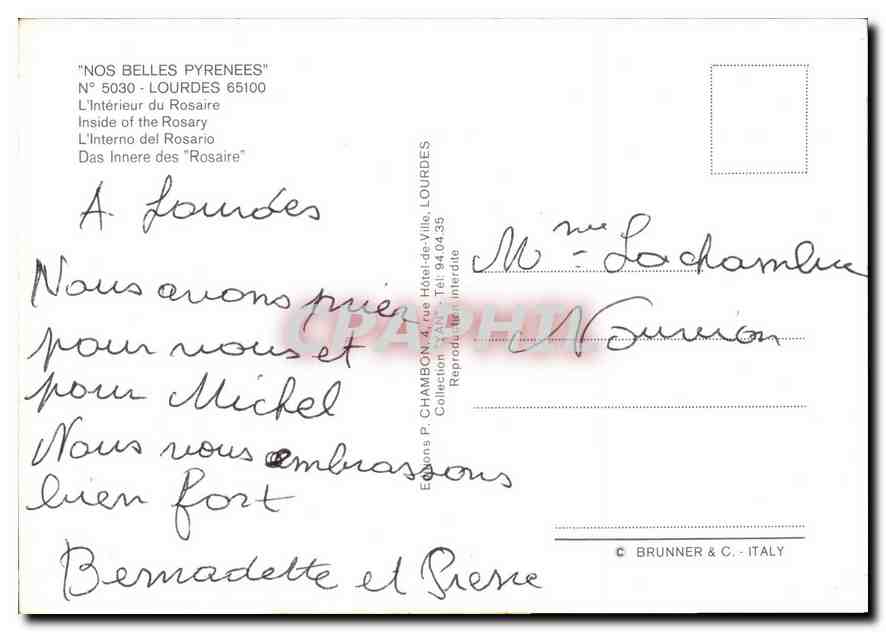 "NOS BELLES PYRENEES"
N° 5030 - LOURDES 65100
L'Intérieur du Rosaire
Inside of the Rosary
L'Interno del Rosario
Das Innere des "Rosaire"
A Lourdes
Nous avons prier
pour vous et
pour Michel
Nous vous embrassons
bien fort
Bernadette et Pierre
Editions P. CHAMBON, 4, rue Hôtel-de-Ville, LOURDES
Collection "YAN" - Tél: 94.04.35
Reproduction interdite
CPAPHIL
Mme Lachambre
Nouvion
© BRUNNER & C. - ITALY